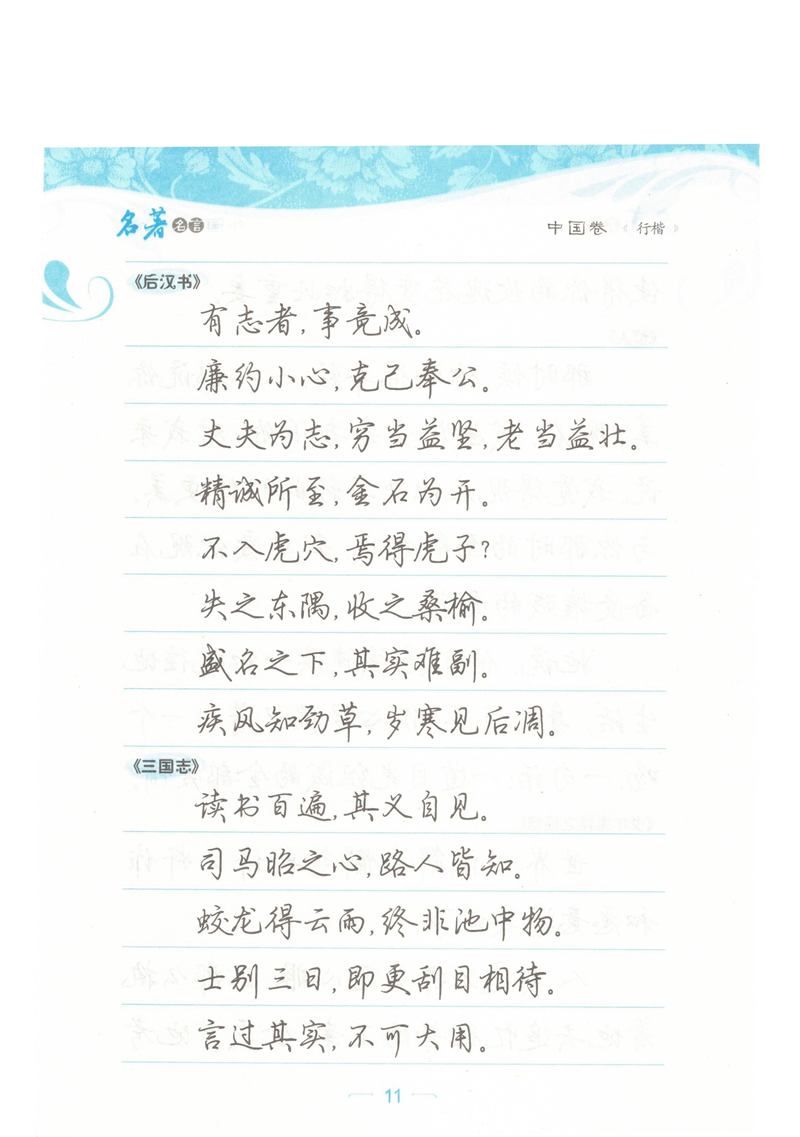 名著名言 中国卷 行楷
《后汉书》
有志者，事竟成。
廉约小心，克己奉公。
丈夫为志，穷当益坚，老当益壮。
精诚所至，金石为开。
不入虎穴，焉得虎子？
失之东隅，收之桑榆。
盛名之下，其实难副。
疾风知劲草，岁寒见后凋。
《三国志》
读书百遍，其义自见。
司马昭之心，路人皆知。
蛟龙得云雨，终非池中物。
士别三日，即更刮目相待。
言过其实，不可大用。
11